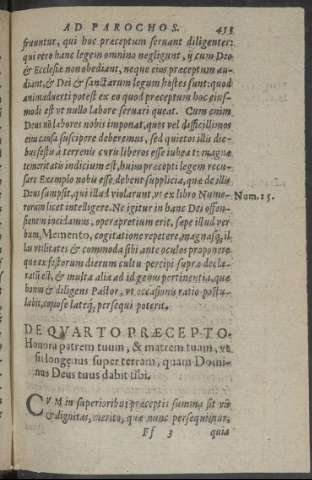 AD PAROCHOS. 453
fruuntur, qui hoc præceptum seruant diligenter:
qui verò hanc legem omnino negligunt, ij cum Deo
& Ecclesiæ non obediant, neque eius præceptum au-
diant, & Dei & sanctarum legum hostes sunt: quod
animaduerti potest ex eo quod præceptum hoc eius-
modi est vt nullo labore seruari queat. Cum enim
Deus nõ labores nobis imponat, quos vel difficillimos
eius causa suscipere deberemus, sed quietos illis die-
bus festis à terrenis curis liberos esse iubeat: magnæ
temeritatis indicium est, huius præcepti legem recu-
sare Exemplo nobis esse debent supplicia, quæ de illis
Deus sumpsit, qui illud violarunt, vt ex libro Nume-
rorum licet intelligere. Ne igitur in hanc Dei offen-
sionem incidamus, operæpretium erit, sæpe illud ver-
bum, Memento, cogitatione repetere, magnasq́; il-
las vtilitates & commoda sibi ante oculos proponere
quæ ex festorum dierum cultu percipi supra decla-
ratũ est, & multa alia ad id genus pertinentia, quæ
bonus & diligens Pastor, vt occasionis ratio postu-
labit, copiose lateq́; persequi poterit.
Num. 15.
DE QVARTO PRÆCEPTO.
Honora patrem tuum, & matrem tuam, vt
sis longæuus super terram, quam Domi-
nus Deus tuus dabit tibi.
CVM in superioribus præceptis summa sit vis
& dignitas, merito, quæ nunc persequimur,
Ff 3 quia